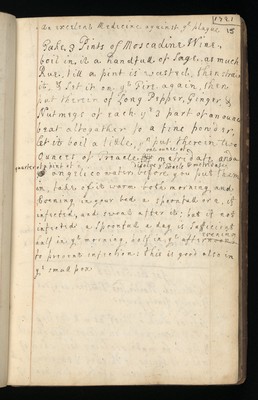 1381
15
An excelent Medicine against yᵉ plague
Take 3 Pints of Moscadine Wine,
boil in it a handfull of Sage, as much
Rue, till a pint is wasted, then strain
it, & set it on yᵉ Fire again, then
put therein of Long Pepper, Ginger, &
Nutmegs of each yᵉ 3 part of an ounce
beat altogether to a fine powder,
let it boil a little, yⁿ put therein two
ounces of Treacle, mithridate, and a
quarter of a pint of yᵉ best
angelico water before you put them
in, take of it warm both morning, and
Evening in your bed a spoonfull or 2, if
infected, and sweat after it; but if not
infected a spoonfull a day is sufficient
half in yᵉ morning, half in yᵉ
evening
to prevent infection: this is good also in
yᵉ small pox